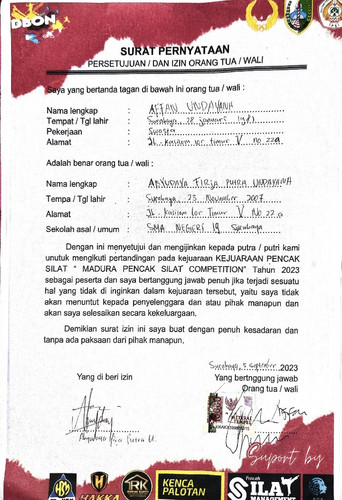 DBON
SURAT PERNYATAAN
PERSETUJUAN / DAN IZIN ORANG TUA / WALI
Saya yang bertanda tagan di bawah ini orang tua / wali :
Nama lengkap : AFFAN UNDAYANA
Tempat / Tgl lahir : Surabaya, 28 Januari 1981
Pekerjaan : Swasta
Alamat : Jl. Kalidami lor timur V No 22a
Adalah benar orang tua / wali :
Nama lengkap : UNDAYANA
Tempa / Tgl lahir : Surabaya 25 November 2007
Alamat : Jl. lor Timur V No 22 a
Sekolah asal / umum : SMA NEGERI 19 Surabaya
Dengan ini menyetujui dan mengijinkan kepada putra / putri kami
unutuk mengikuti pertandingan pada kejuaraan KEJUARAAN PENCAK
SILAT " MADURA PENCAK SILAT COMPETITION" Tahun 2023
sebagai peserta dan saya bertanggung jawab penuh jika terjadi sesuatu
hal yang tidak di inginkan dalam kejuaraan tersebut, yaitu saya tidak
akan menuntut kepada penyelenggara dan atau pihak manapun dan
akan saya selesaikan secara kekeluargaan.
Demikian surat izin ini saya buat dengan penuh kesadaran dan
tanpa ada paksaan dari pihak manapun.
Surabaya, 5 September 2023
Yang di beri izin
Yang bertnggung jawab
Orang tua / wali
METERAI
TEMPEL
Suport by
HAKKA
RK
KENCA
PALOTAN
Pencak
SILAT
MANAGEMENT